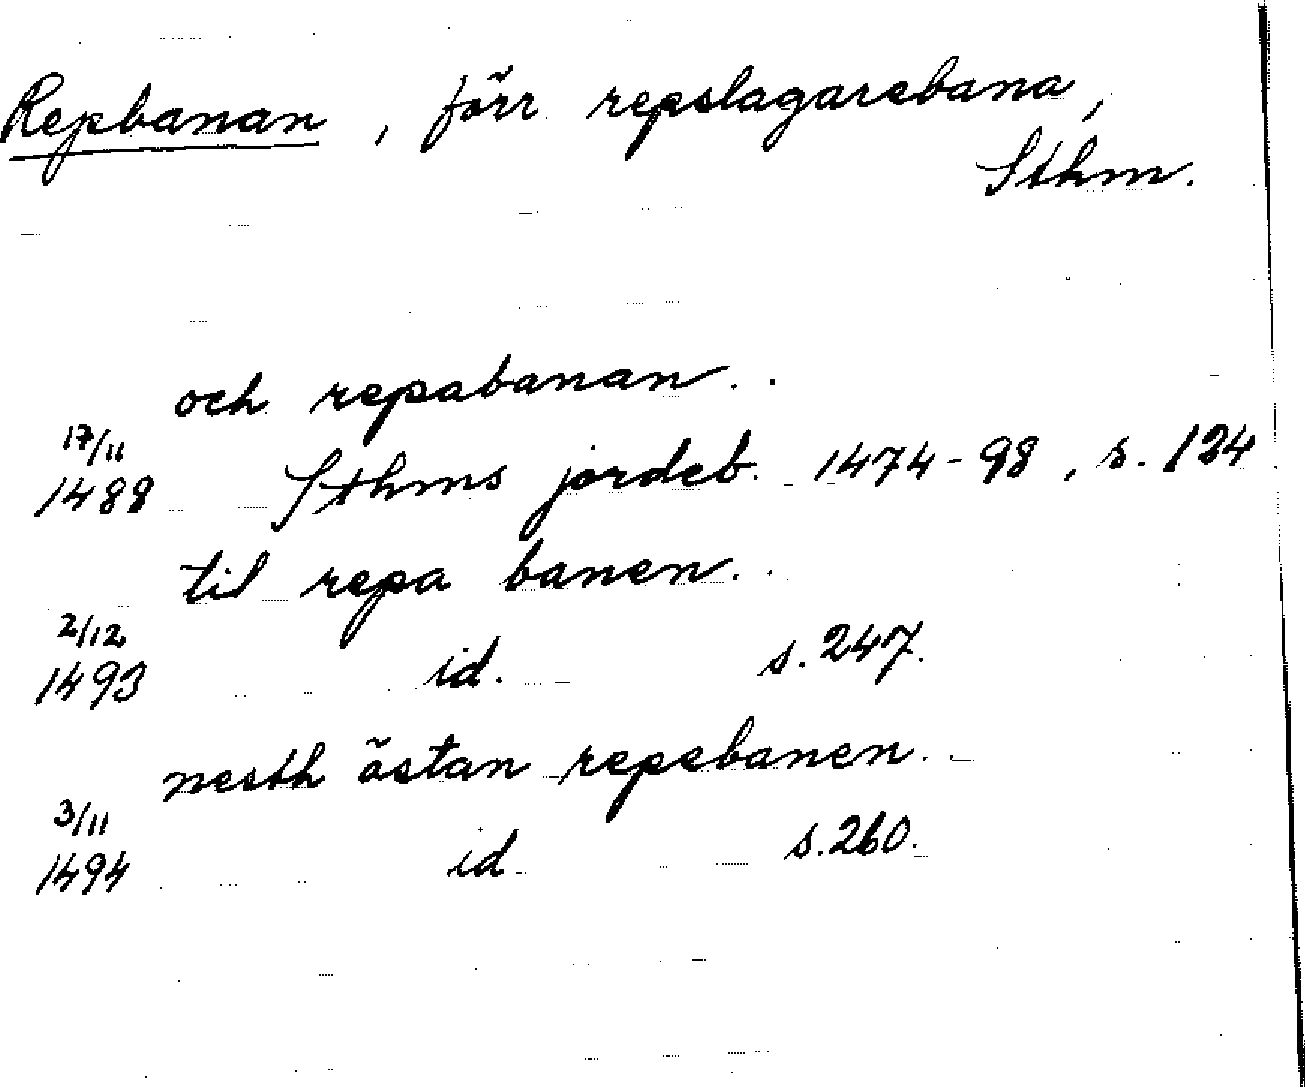 Repbanan, förr repslagarebana,
Sthm.
och repabanan..
17/11
1488 Sthms jordeb. 1474-98, s. 124
til repa banen..
2/12
1493 id. s. 247.
nesth östan repebanen..
3/11
1494 id. s. 260.